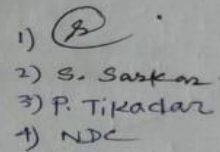 1)
2) S. Sarkar
3) P. Tikadar
4) NDC